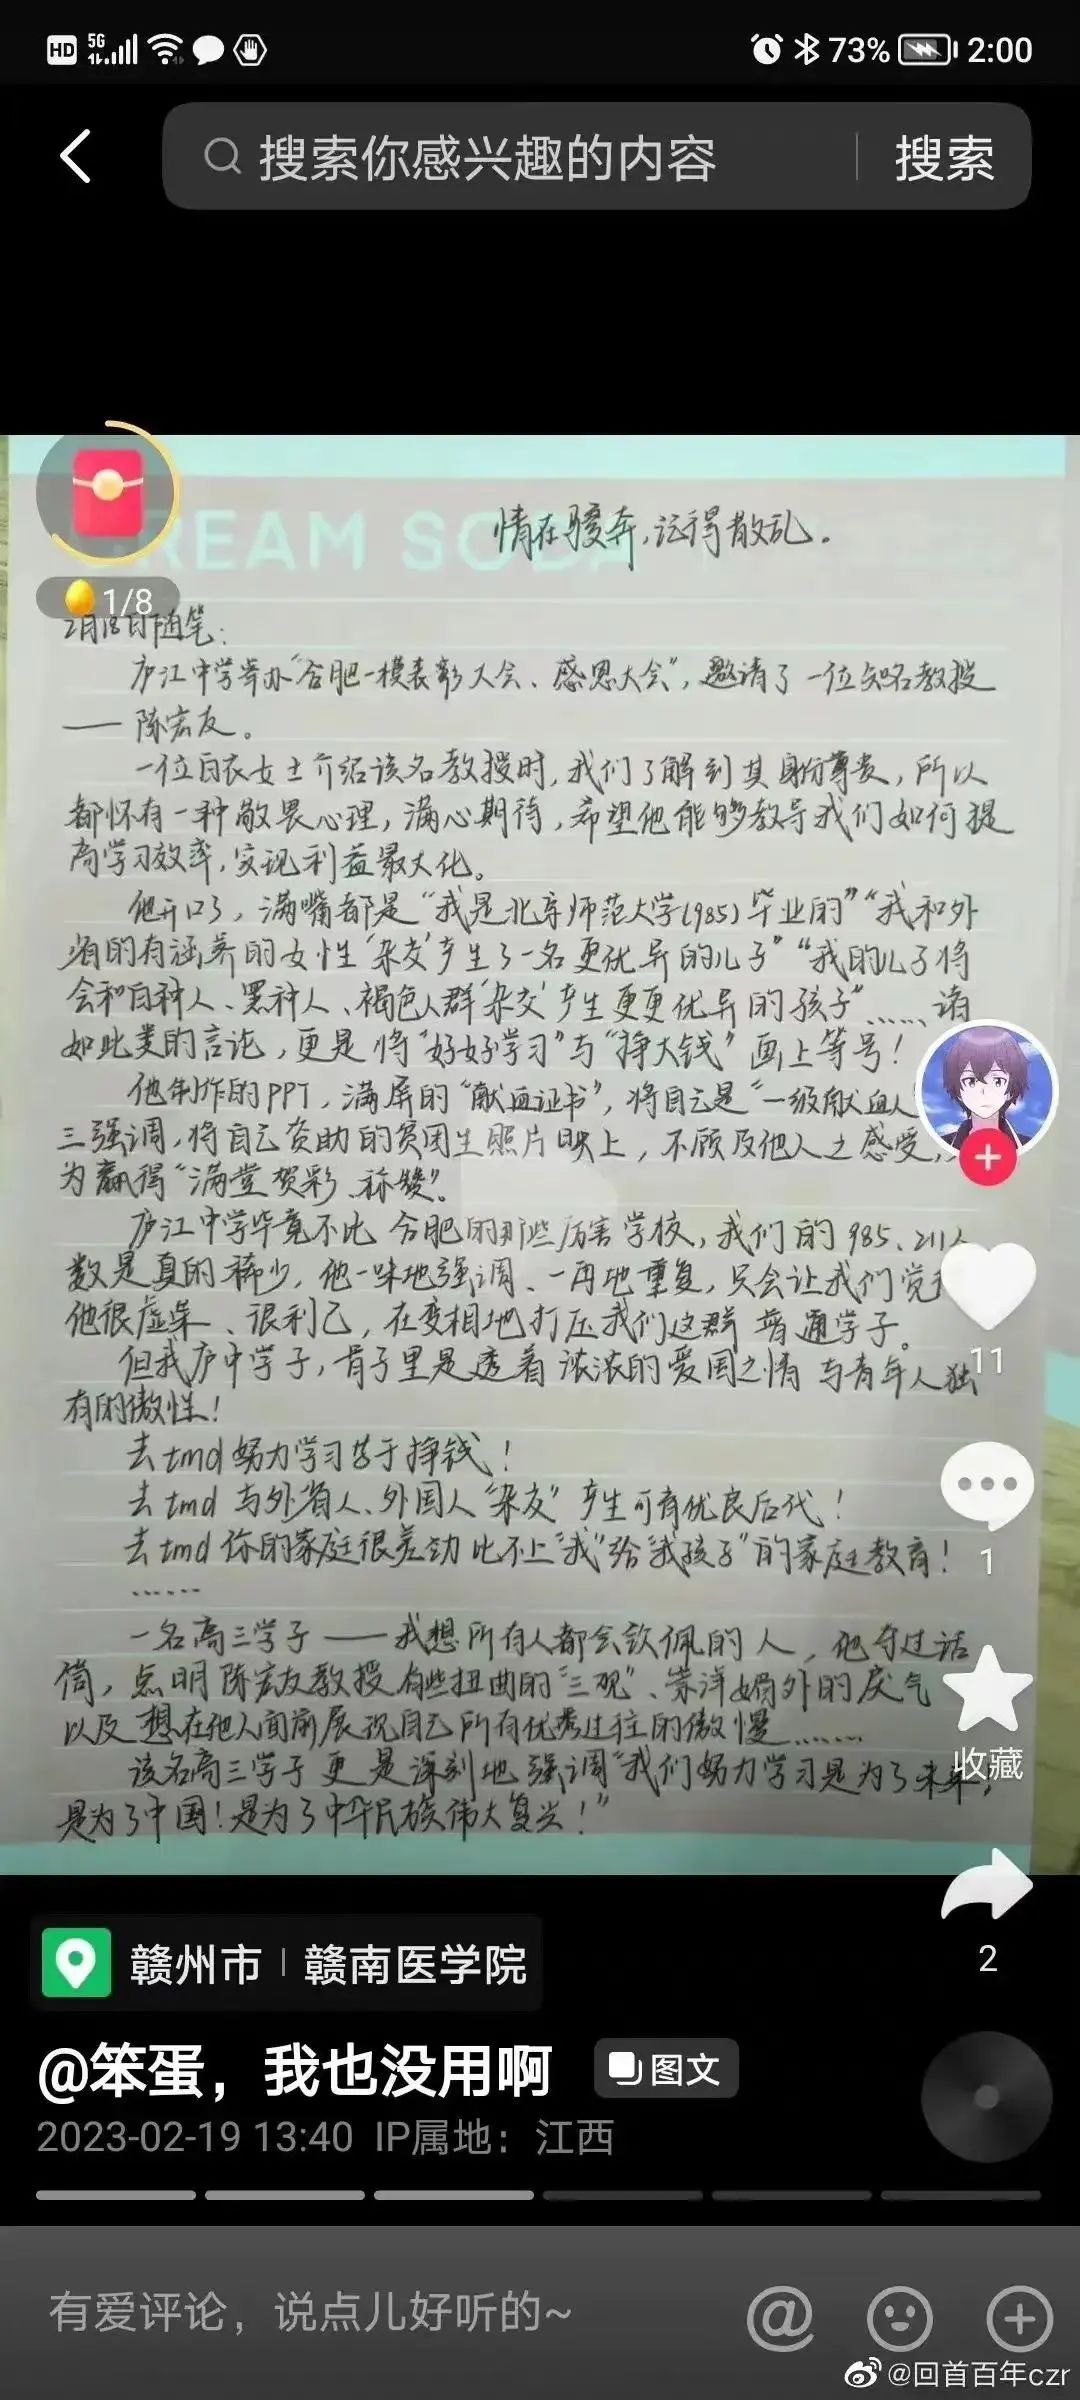 HD 5G 73% 2:00
搜索你感兴趣的内容 搜索
CREAM SODA
情在骏奔，记得散乱。
1/8
2月18日随笔：
庐江中学举办“合肥一模表彰大会、感恩大会”，邀请了一位知名教授
——陈宏友。
一位白衣女士介绍该名教授时，我们了解到其身份尊贵，所以
都怀有一种敬畏心理，满心期待，希望他能够教导我们如何提
高学习效率，实现利益最大化。
他开口了，满嘴都是“我是北京师范大学(985)毕业的”“我和外
省的有涵养的女性‘杂交’产生了一名更优异的儿子”“我的儿子将
会和白种人、黑种人、褐色人群‘杂交’产生更更优异的孩子”……诸
如此类的言论，更是将“好好学习”与“挣大钱”画上等号！
他制作的PPT，满屏的“献血证书”，将自己是“一级献血人
三强调，将自己资助的贫困生照片映上，不顾及他人之感受，
为赢得“满堂贺彩、称赞”。
庐江中学毕竟不比合肥的那些厉害学校，我们的985、211人
数是真的稀少，他一味地强调、一再地重复，只会让我们觉
他很虚荣、很利己，在变相地打压我们这群普通学子。
但我庐中学子，骨子里是透着浓浓的爱国之情与青年人独
有的傲性！
去tmd努力学习等于挣钱！
去tmd与外省人、外国人“杂交”产生可育优良后代！
去tmd你的家庭很差劲比不上“我”给“我孩子”的家庭教育！
……
一名高三学子——我想所有人都会钦佩的人，他夺过话
筒，点明陈宏友教授有些扭曲的“三观”、崇洋媚外的戾气
以及想在他人间前展现自己所有优秀过往的傲慢……
该名高三学子更是深刻地强调“我们努力学习是为了未来，
是为了中国！是为了中华民族伟大复兴！”
11
1
收藏
2
赣州市 | 赣南医学院
@笨蛋，我也没用啊 图文
2023-02-19 13:40 IP属地：江西
有爱评论，说点儿好听的~
@回首百年czr